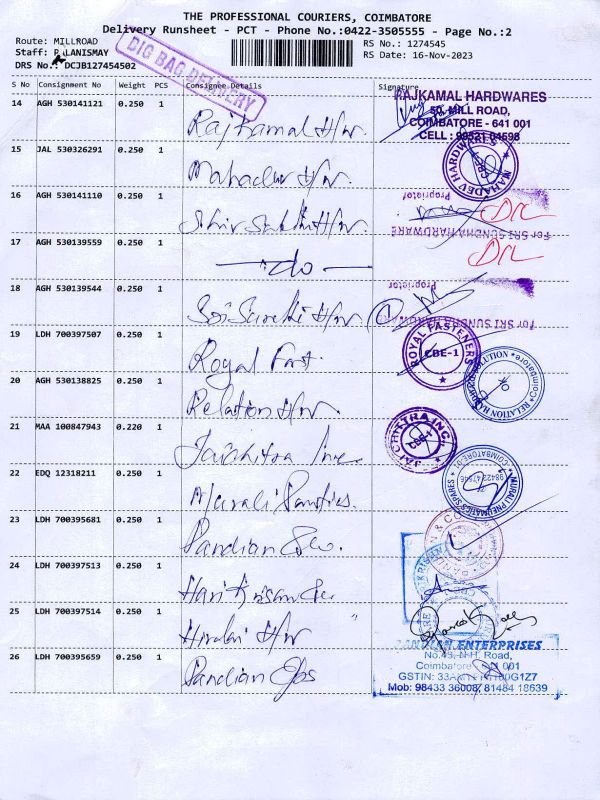 THE PROFESSIONAL COURIERS, COIMBATORE
Delivery Runsheet - PCT - Phone No.:0422-3505555 - Page No.:2
Route: MILLROAD
RS No.: 1274545
Staff: P.LANISMAY
RS Date: 16-Nov-2023
DRS No.: DCJB127454502
BIG BAG DELIVERY
S No Consignment No Weight PCS Consignee Details Signature
14 AGH 530141121 0.250 1 Rajkamal H/w.
RAJKAMAL HARDWARES
50, MILL ROAD,
COIMBATORE - 641 001
CELL : 99521 04698
15 JAL 530326291 0.250 1 Mahadev H/w.
MAHADEV HARDWARES
CBE-1
16 AGH 530141110 0.250 1 H/w.
Proprietor
For SRI SUNDHA HARDWARE
17 AGH 530139559 0.250 1 — do —
18 AGH 530139544 0.250 1 Sri H/w.
Proprietor
19 LDH 700397507 0.250 1 Royal Fast.
ROYAL FASTENERS
CBE-1
20 AGH 530138825 0.250 1 Relation H/w.
Coimbatore
21 MAA 100847943 0.220 1 Jaichitra Inc
JAICHITTRA INC.
CBE-1
22 EDQ 12318211 0.250 1 Murali
MURALI PNEUMATICS SPARES
98422 47846
COIMBATORE
23 LDH 700395681 0.250 1 Pandian &Co.
24 LDH 700397513 0.250 1
25 LDH 700397514 0.250 1 H/w
26 LDH 700395659 0.250 1 Pandian
PANDIAN ENTERPRISES
Road,
Coimbatore - 641 001
GSTIN:
Mob: 98433 36008, 81484 18639